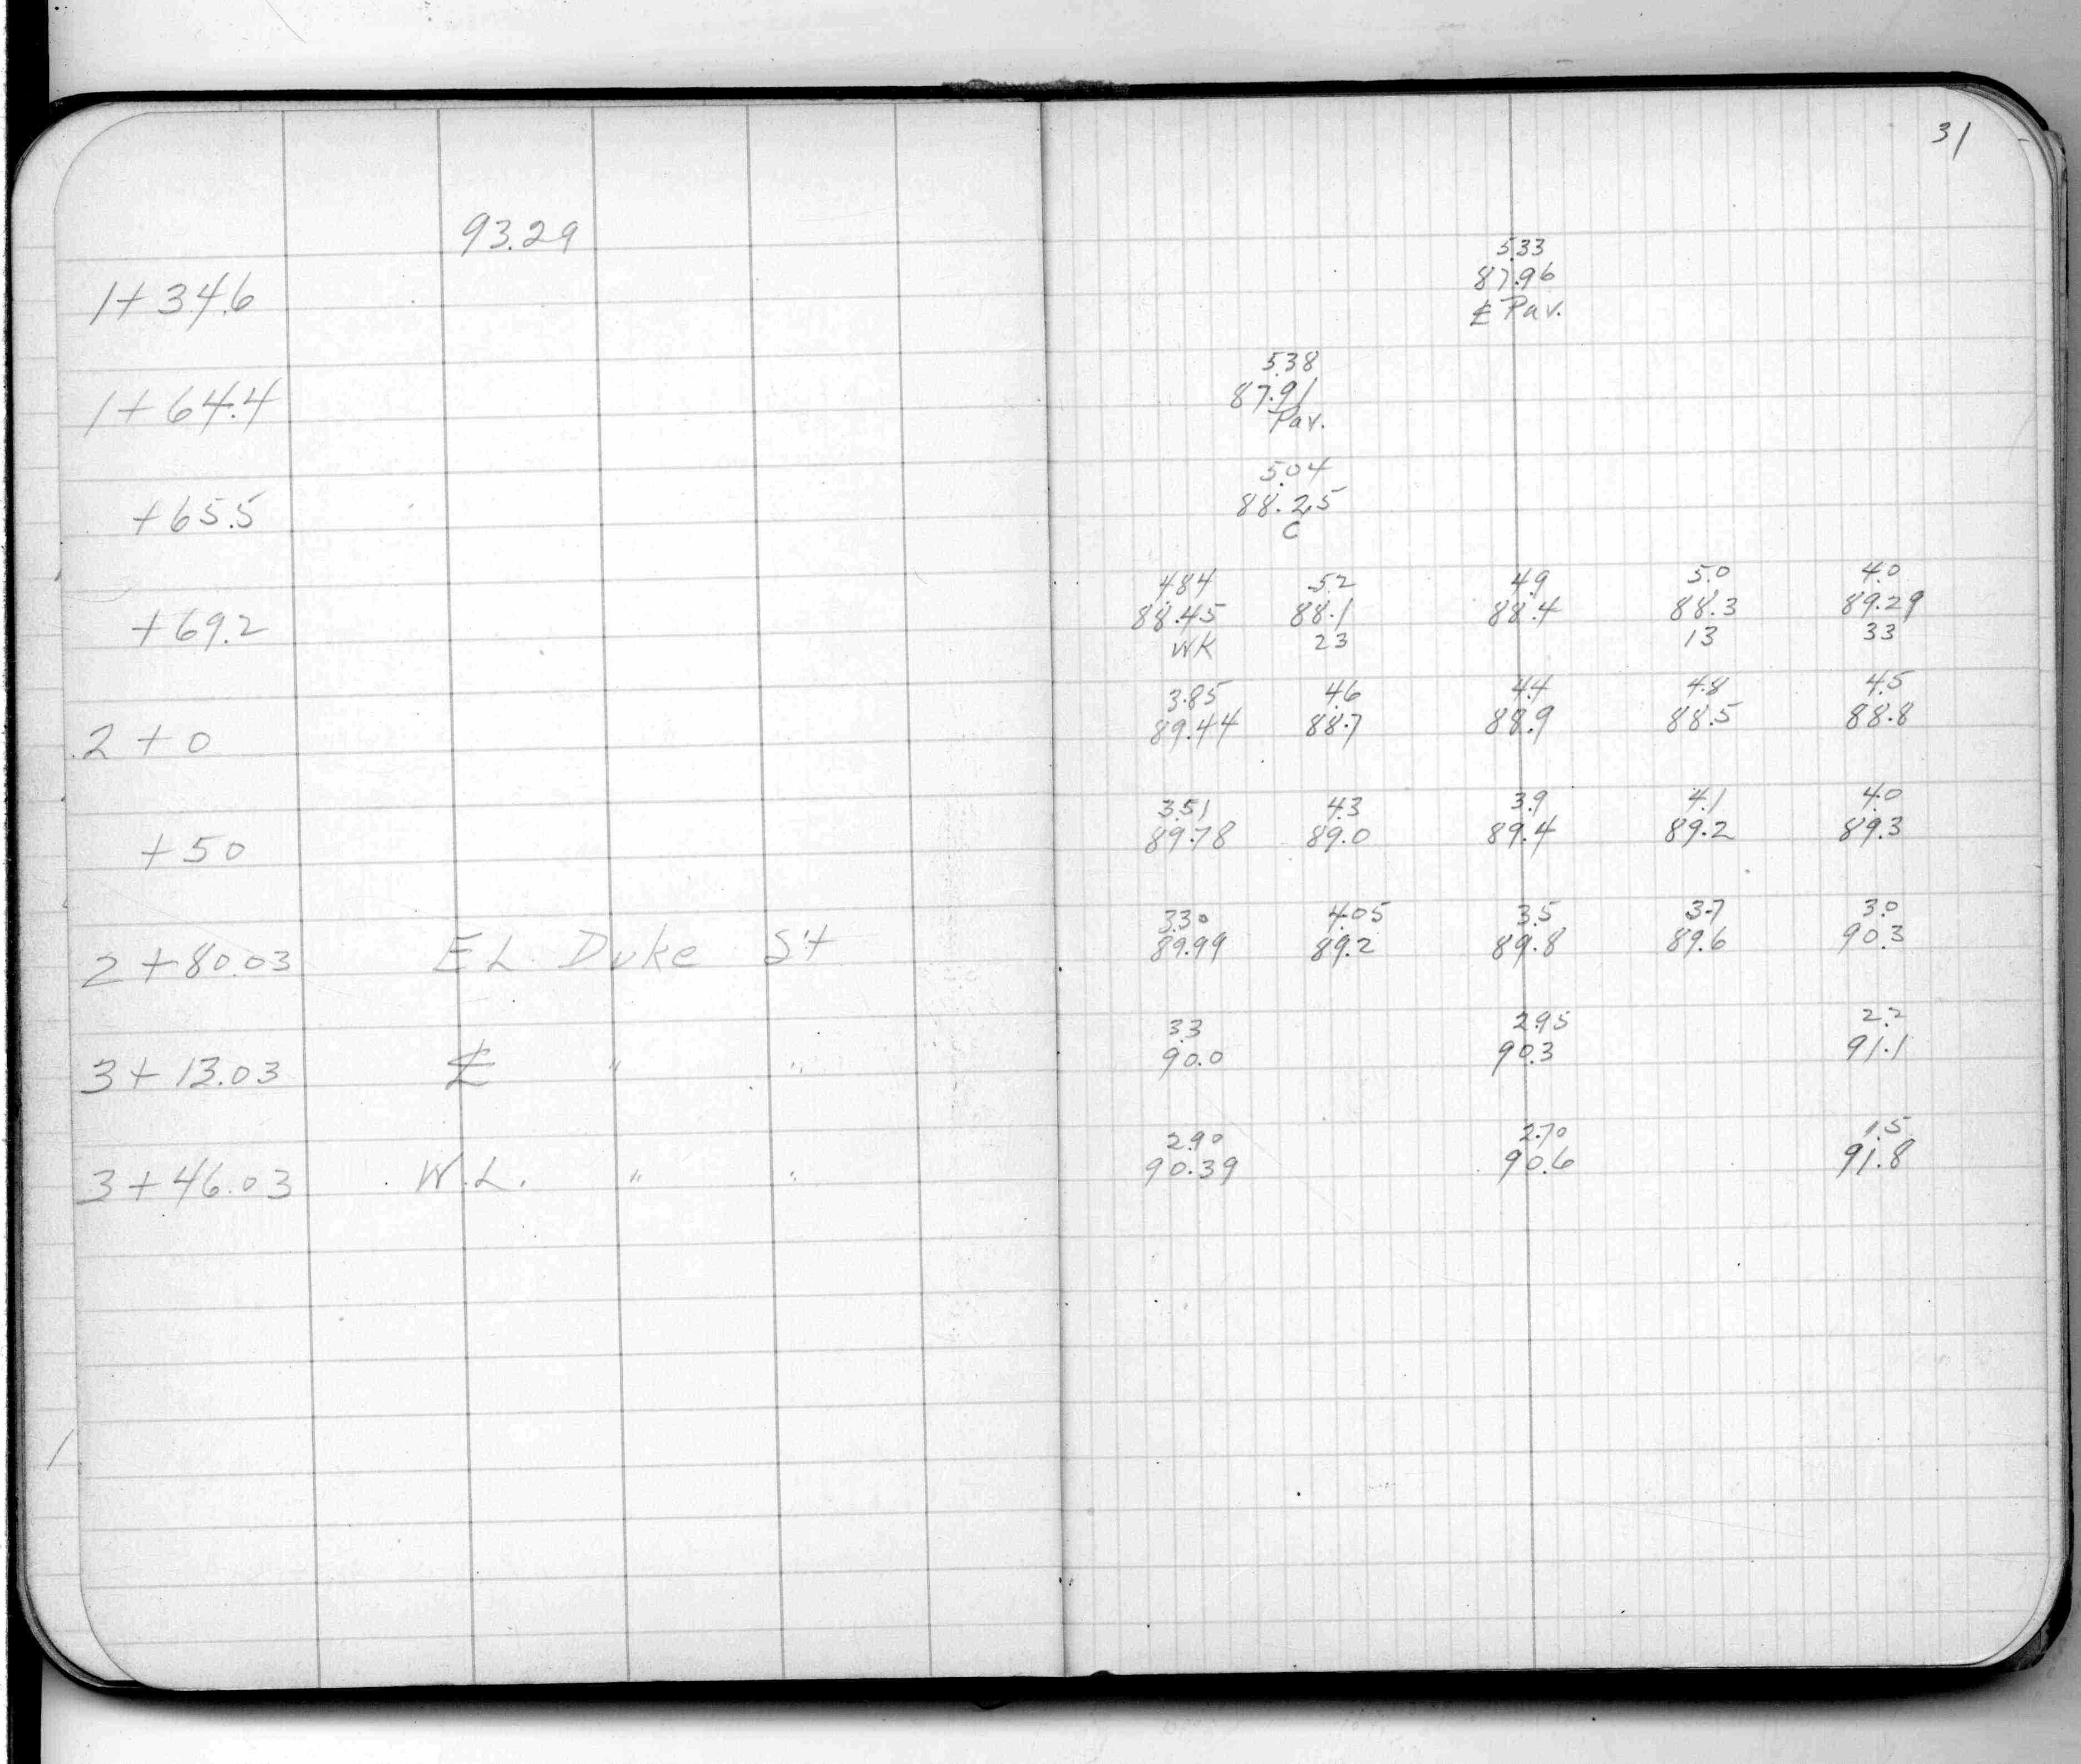 31
93.29
5.33
1+34.6 87.96
℄ Pav.
5.38
1+64.4 87.91
Pav.
5.04
+65.5 88.25
C
4.84 5.2 4.9 5.0 4.0
+69.2 88.45 88.1 88.4 88.3 89.29
WK 23 13 33
3.85 4.6 4.4 4.8 4.5
2+0 89.44 88.7 88.9 88.5 88.8
3.51 4.3 3.9 4.1 4.0
+50 89.78 89.0 89.4 89.2 89.3
3.30 4.05 3.5 3.7 3.0
2+80.03 E L. Duke St 89.99 89.2 89.8 89.6 90.3
3.3 2.95 2.2
3+13.03 ℄ " " 90.0 90.3 91.1
2.90 2.70 1.5
3+46.03 W.L. " " 90.39 90.6 91.8